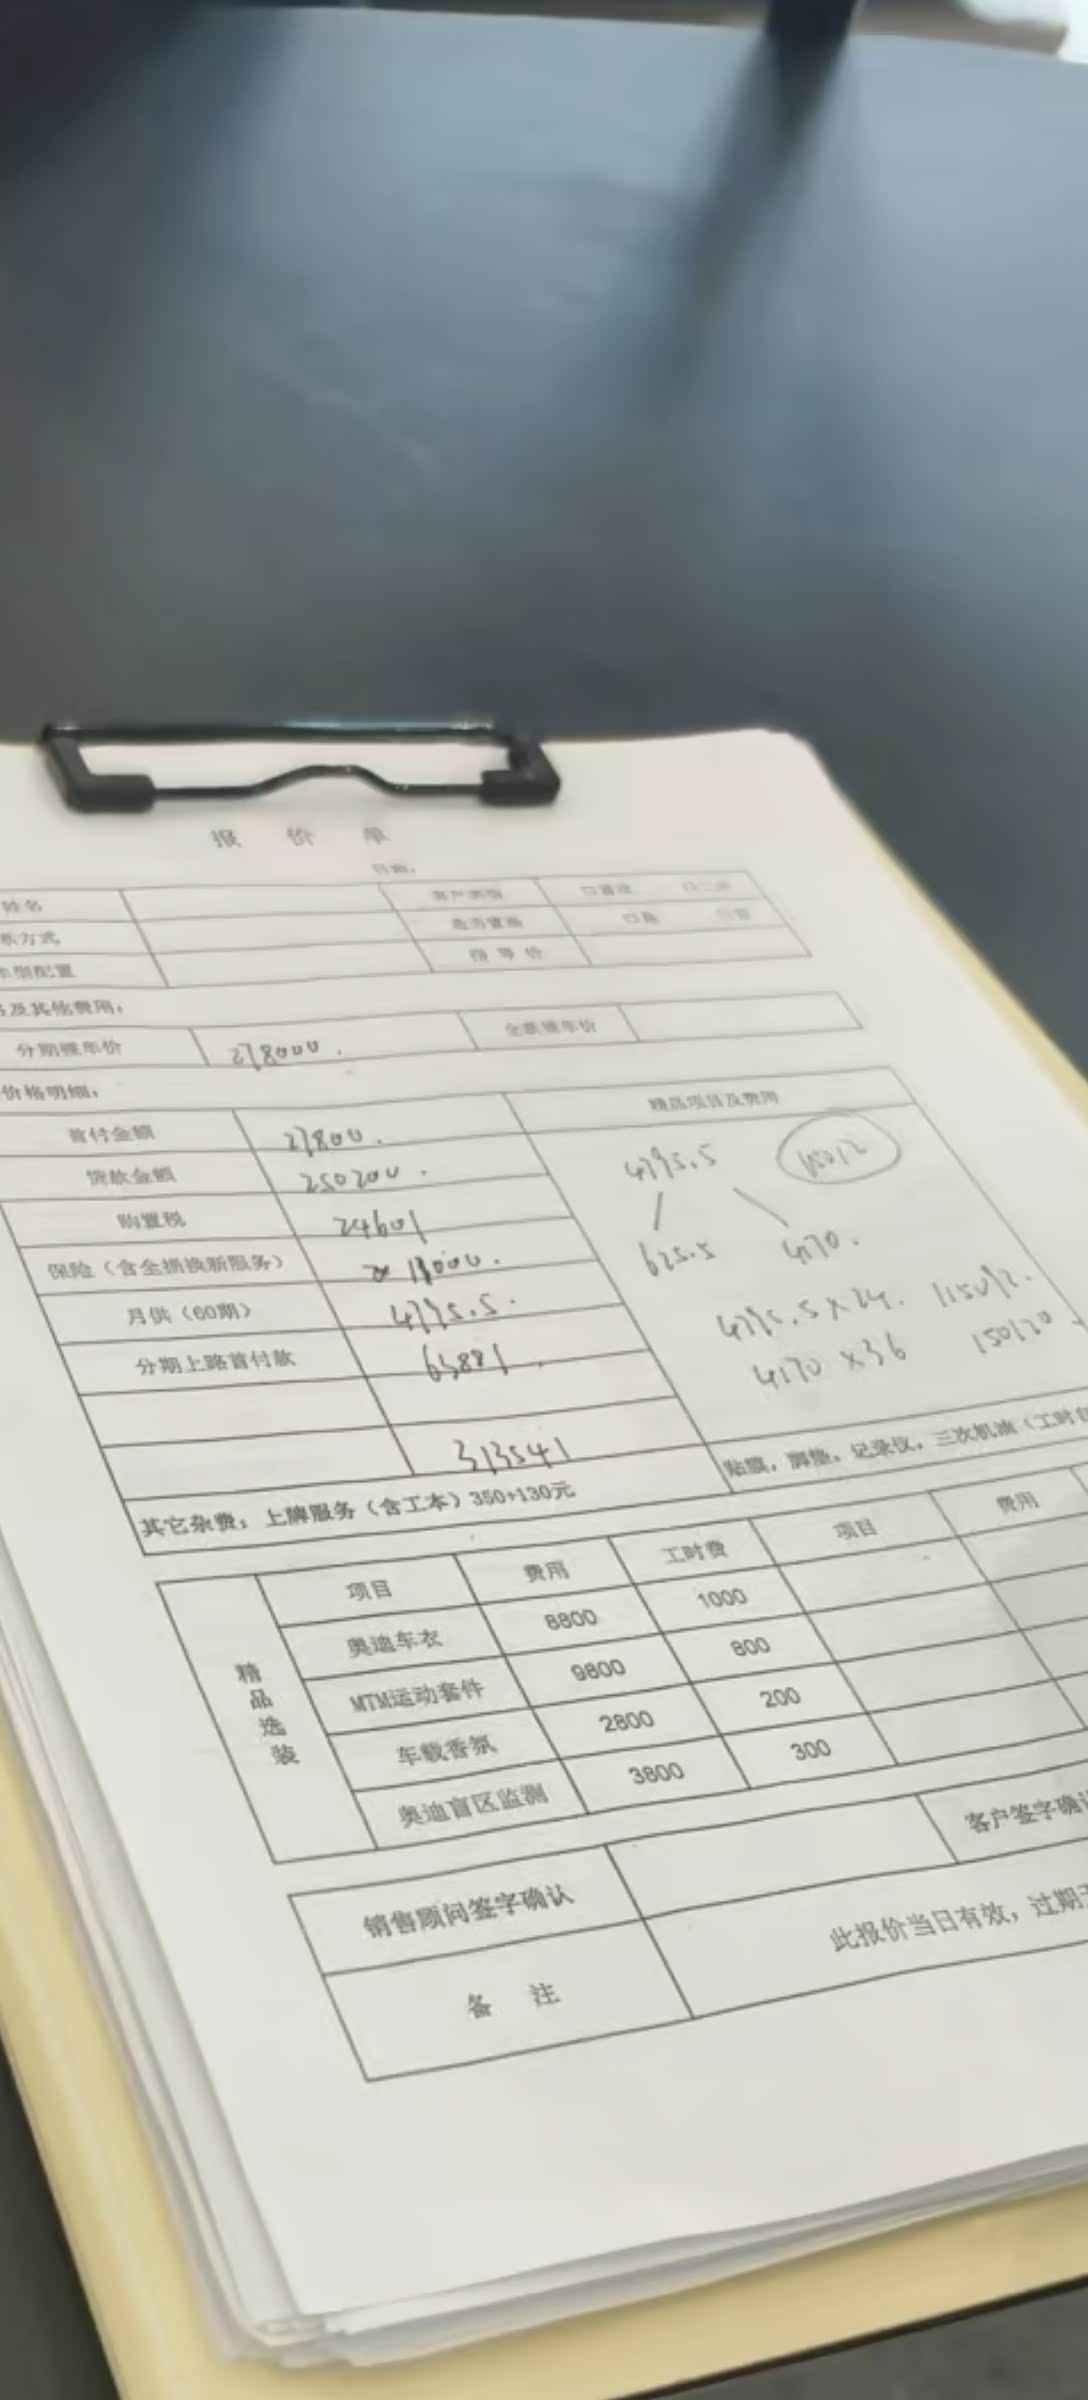 报 价 单
日期：
姓名 客户类型
系方式 是否置换 口是 口否
车型配置 指 导 价
及其他费用：
分期裸车价 278000. 全款裸车价
价格明细：
首付金额 27800. 精品项目及费用
贷款金额 250200.
购置税 24601
保险（含全损换新服务）
月供（60期） 4795.5.
分期上路首付款
313541
4795.5
625.5 4170.
4795.5×24. 115092.
4170 ×36 150120
贴膜，脚垫，记录仪，三次机油（工时
其它杂费：上牌服务（含工本）350+130元
精品选装
项目 费用 工时费 项目 费用
奥迪车衣 8800 1000
MTM运动套件 9800 800
车载香氛 2800 200
奥迪盲区监测 3800 300
销售顾问签字确认 客户签字确认
备 注 此报价当日有效，过期